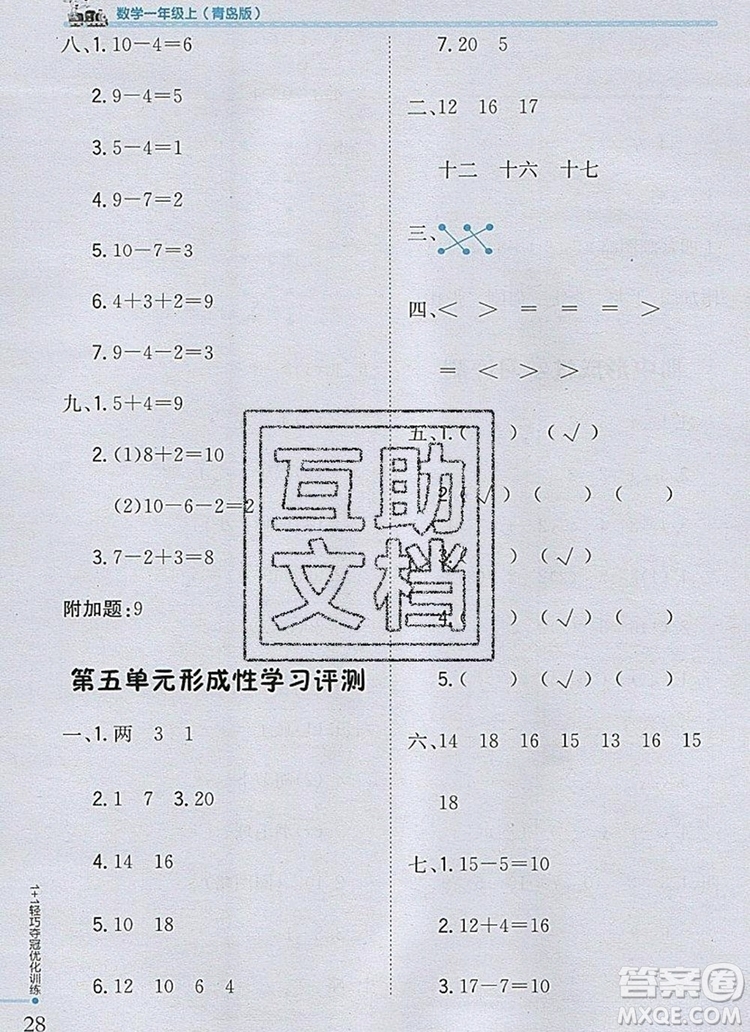 数学一年级上（青岛版）
八、1.10－4＝6
2.9－4＝5
3.5－4＝1
4.9－7＝2
5.10－7＝3
6.4＋3＋2＝9
7.9－5－2＝2
九、1.5＋4＝9
2.（1）8＋2＝10
（2）10－6－2＝2
3.7－2＋3＝8
附加题：9
第五单元形成性学习评测
一、1.两 3 1
2.1 7 3.20
4.14 16
5.10 18
6.12 10 6 4
7.20 5
二、12 16 17
十二 十六 十七
三、
四、＜ ＞ ＝ ＝ ＝ ＞
＝ ＜ ＞ ＞ ＞
五、1.（ ）（√）
2.（√）（ ）（ ）
3.（ ）（√）
4.（ ）（√）（ ）
5.（ ）（√）（ ）
六、14 18 16 15 16 15
18
七、1.15－5＝10
2.12＋4＝16
3.17－7＝10
1+1轻巧夺冠优化训练
28
互助
文档
答案圈
MXQE.COM